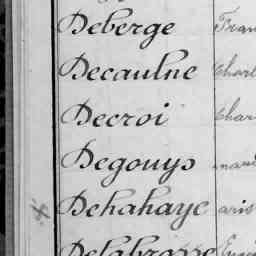 Deberge Fran
Decaulne Charl
Decroi Char
Degouys mari
Dehahaye aris
Delabrosse Eugè